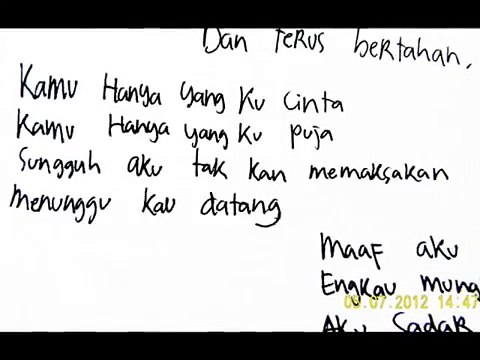 Dan Terus bertahan.
Kamu Hanya yang Ku Cinta
Kamu Hanya yang Ku puja
Sungguh aku tak kan memaksakan
Menunggu kau datang
Maaf aku
Engkau mung
09.07.2012 14:47
Aku Sadar